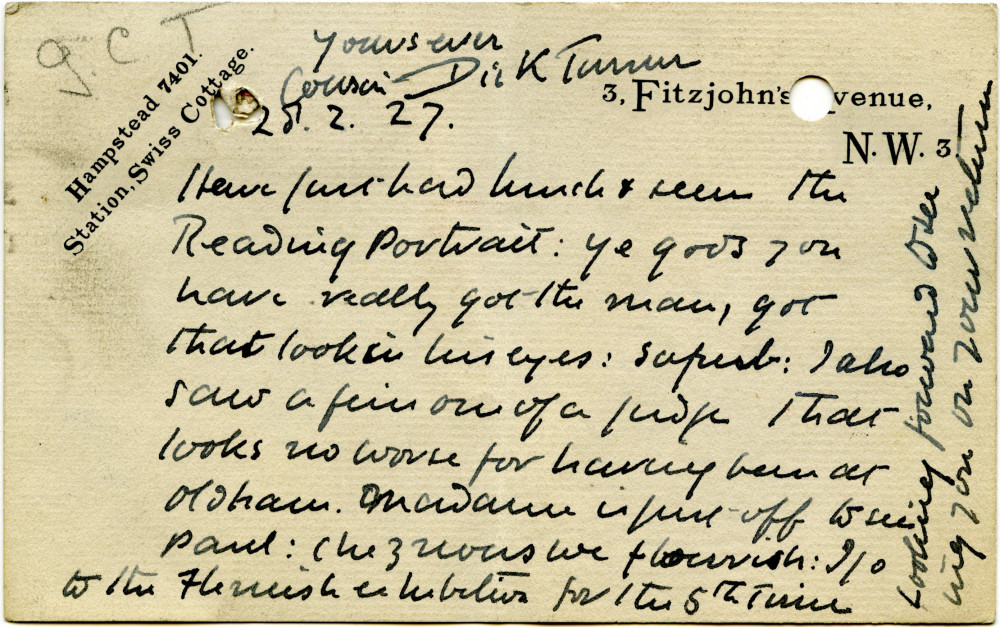 G. C. T
Hampstead 7401.
Station, Swiss Cottage.
3, Fitzjohn's venue,
N.W. 3
25. 2. 27.
Have just had lunch & seen the
Reading Portrait: ye gods you
have really got the man, got
that look in his eyes: superb: I also
saw a fine one of a judge that
looks no worse for having been at
Oldham. Madame is just off to see
Paul: chez nous we flourish: I go
to the Flemish exhibition for the 5th Time
Looking forward to see
ing you on your return
Yours ever
Cousin Dick Turner